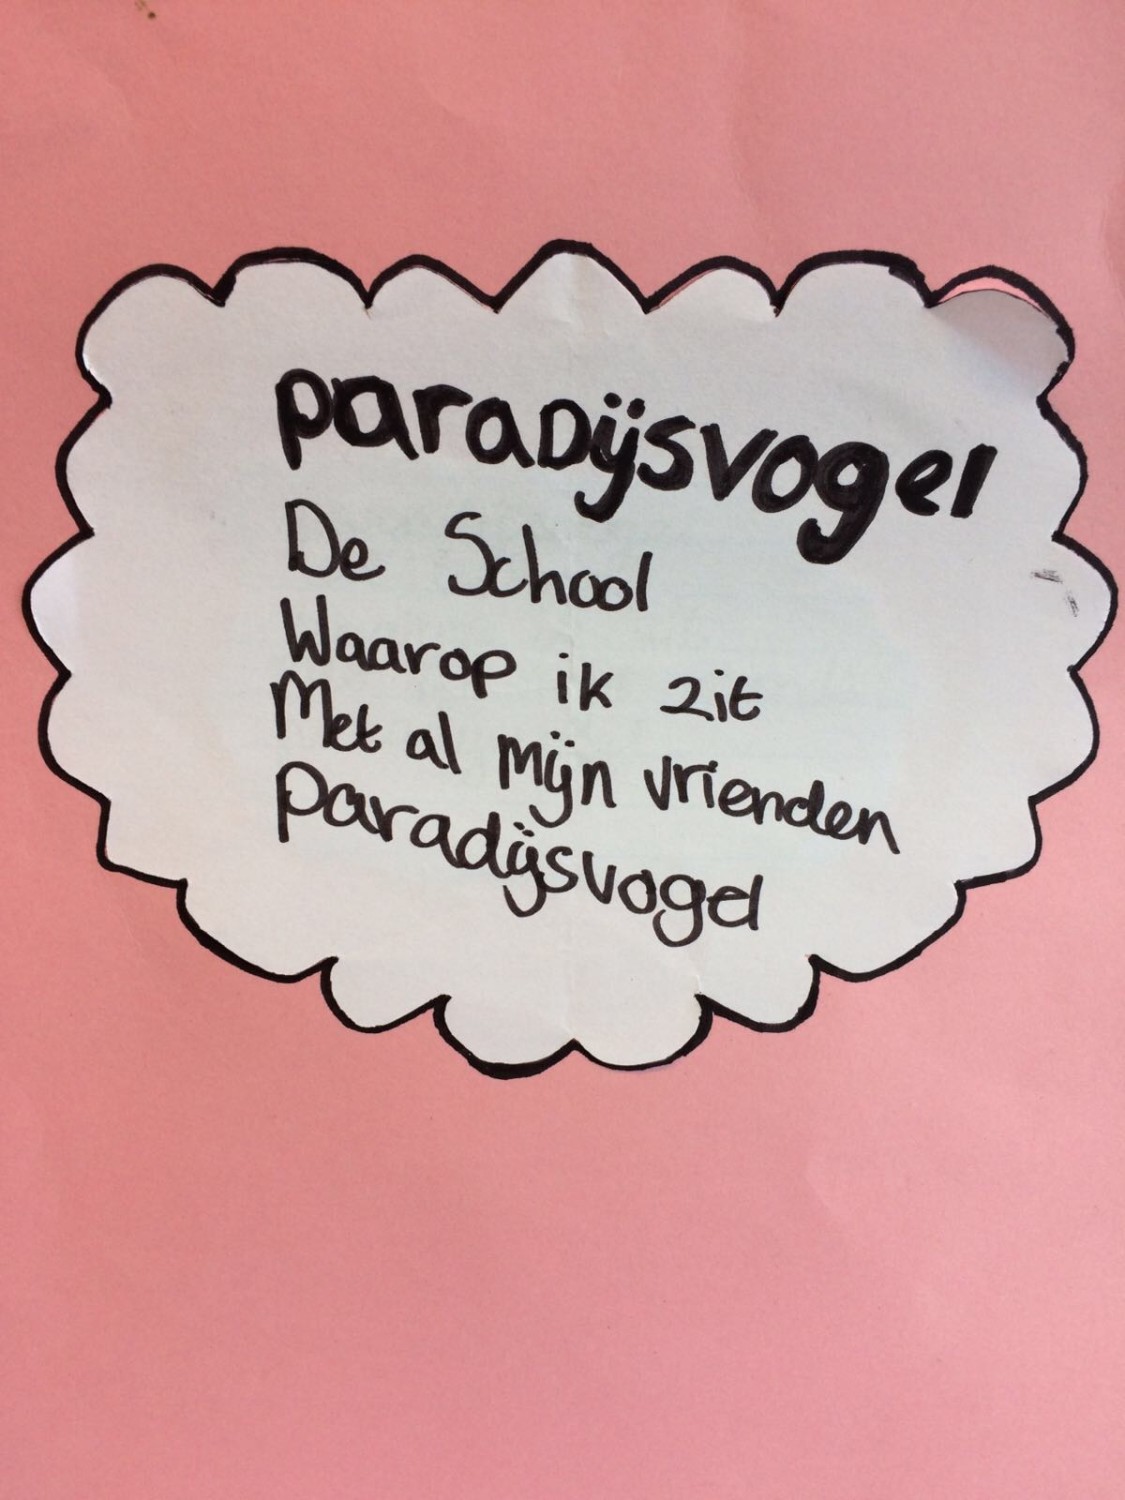 paradijsvogel
De School
Waarop ik zit
Met al mijn vrienden
paradijsvogel